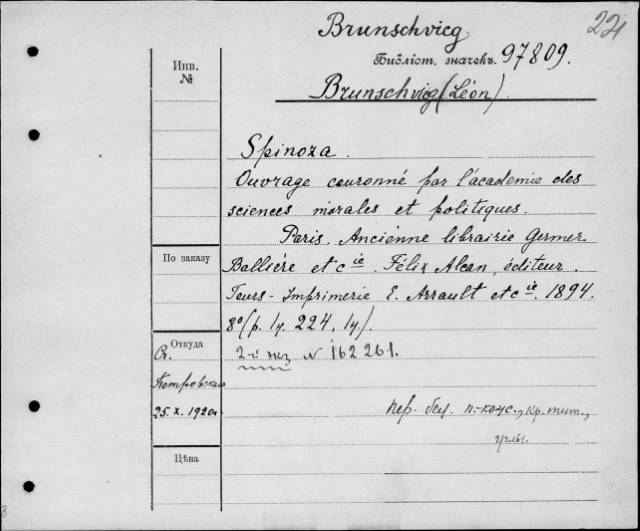 Brunschvicg
221
Библіот. значекъ. 97809.
Инв.
№
Brunschvicg (Léon).
Spinoza.
Ouvrage couronné par l'academie des
sciences morales et politiques.
Paris. Anciénne librairie Germer
По заказу
Ballière et cie. Félix Alcan, éditeur.
Tours - Imprimerie E. Arrault et cie. 1894.
8° (p. 224,
Откуда
2-й экз N 162261.
Петровская
25. X. 1920г
пер. бел. Кр. тит.,
Цѣна